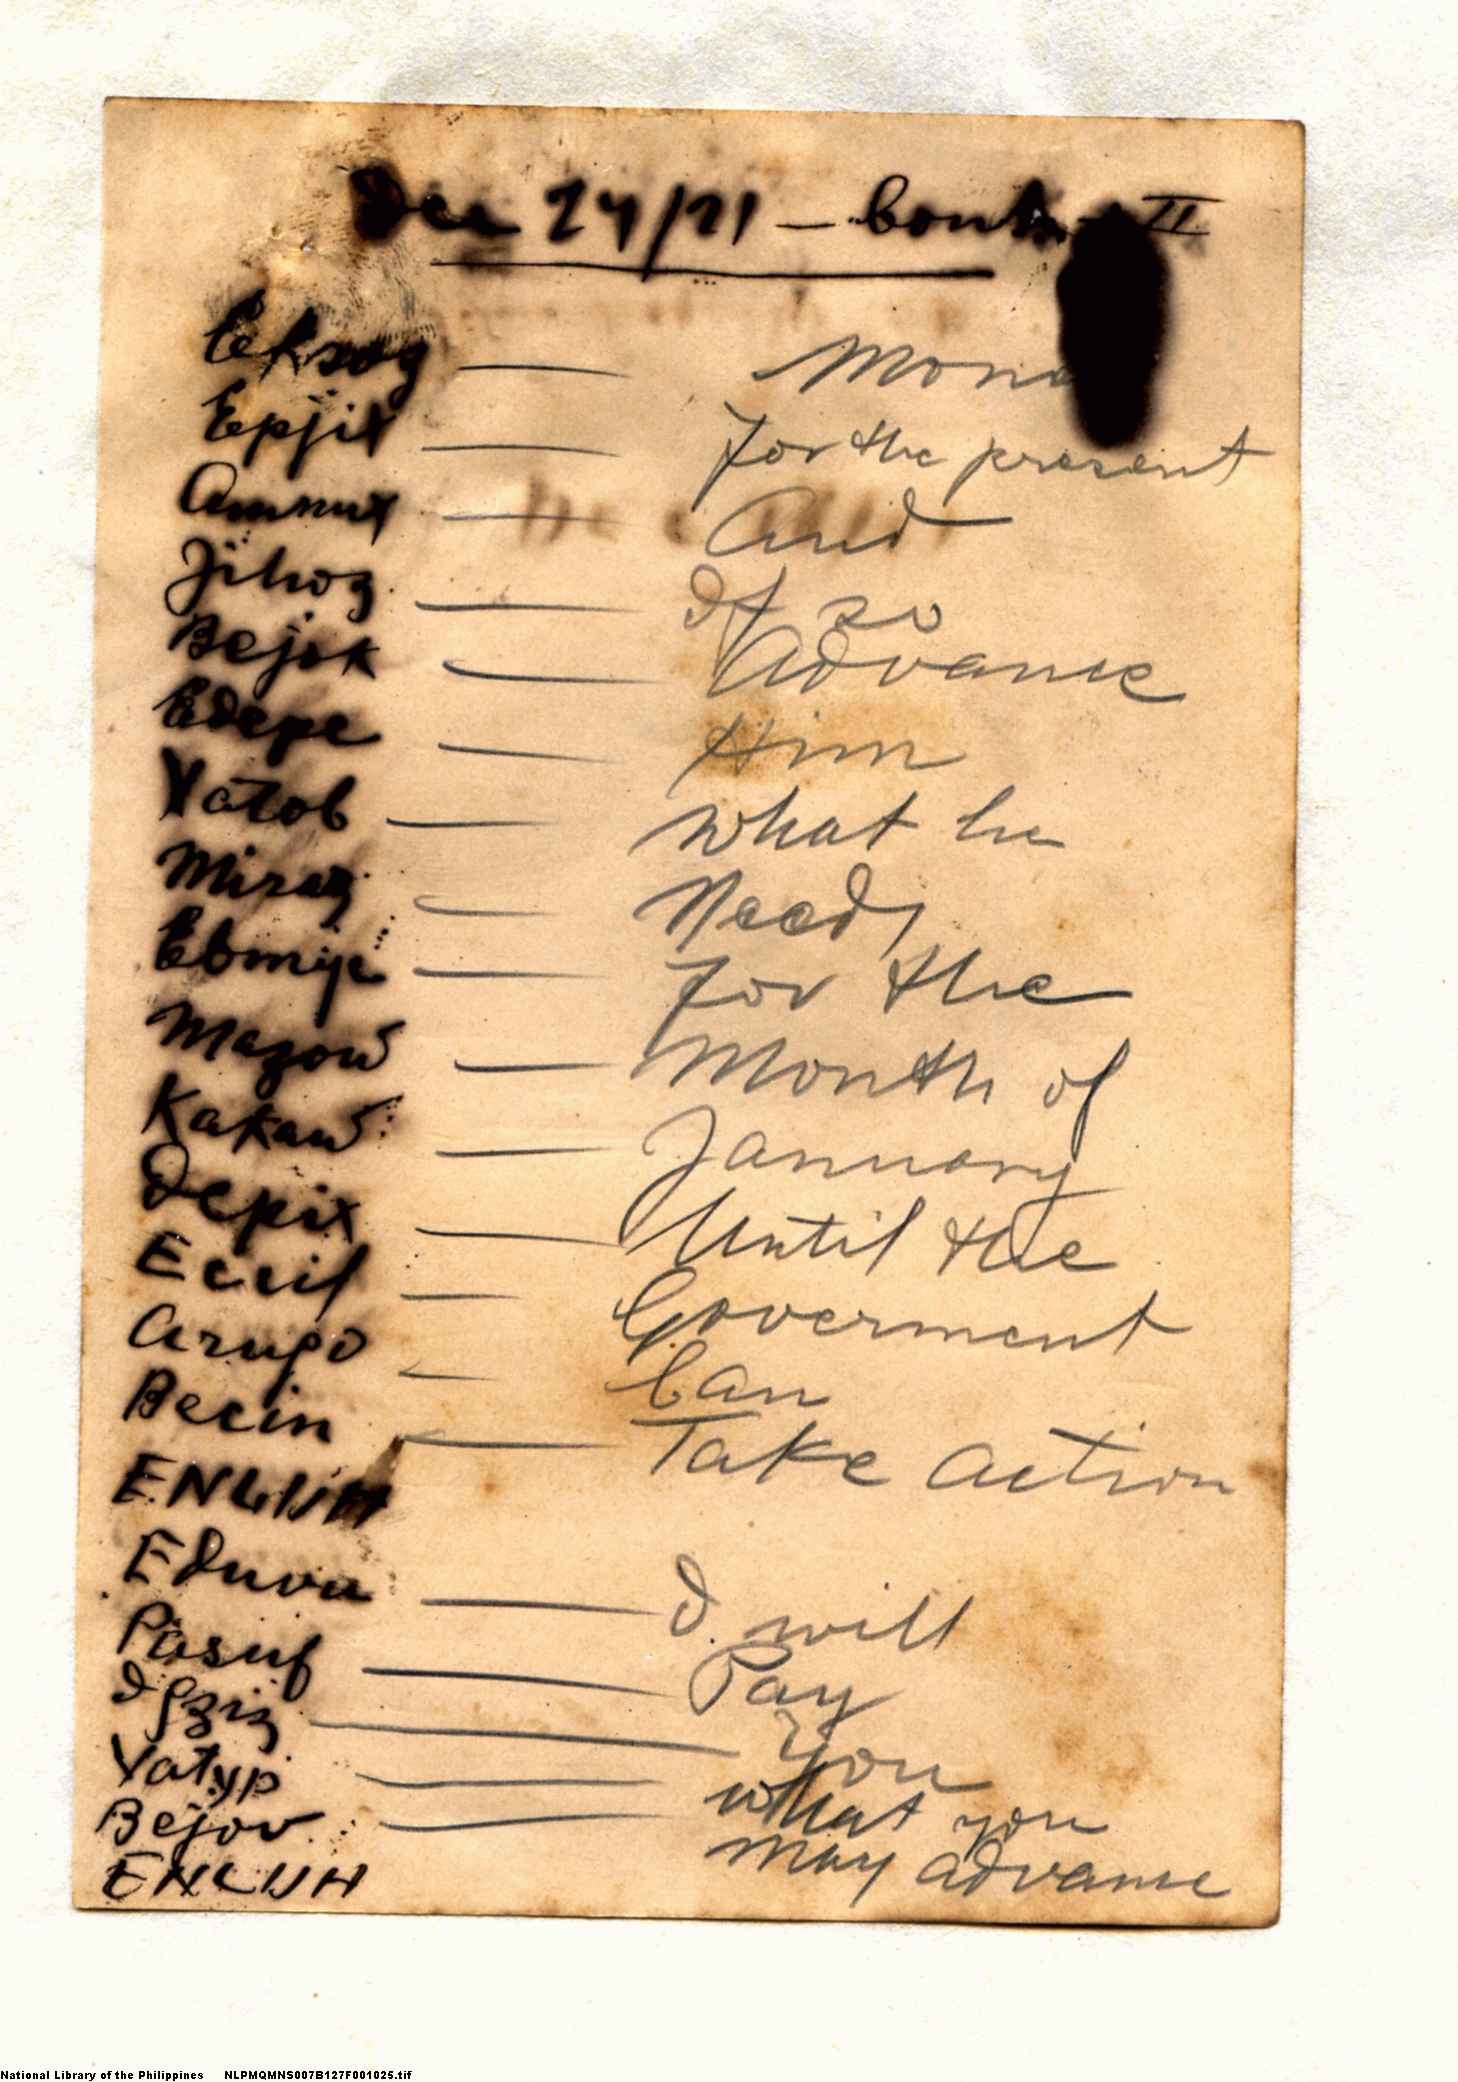 Dec 24/21 — Cont. II
Eksog — Mon
Epjix — For the present
Amnux — And
Jihog — If so
Bejsk — Advance
Edepe — Him
Yatob — What he
Miraz — Needs
Ebmije — For the
Mazow — Month of
Kakaw — January
Depix — Until the
Eccif — Goverment
Arugo — Can
Becin — Take action
ENGLISH
Eduva — I will
Pasuf — Pay
Ifziz — You
Yatyp — What you
Bejov — May advance
ENGLISH
National Library of the Philippines NLPMQMNS007B127F001025.tif